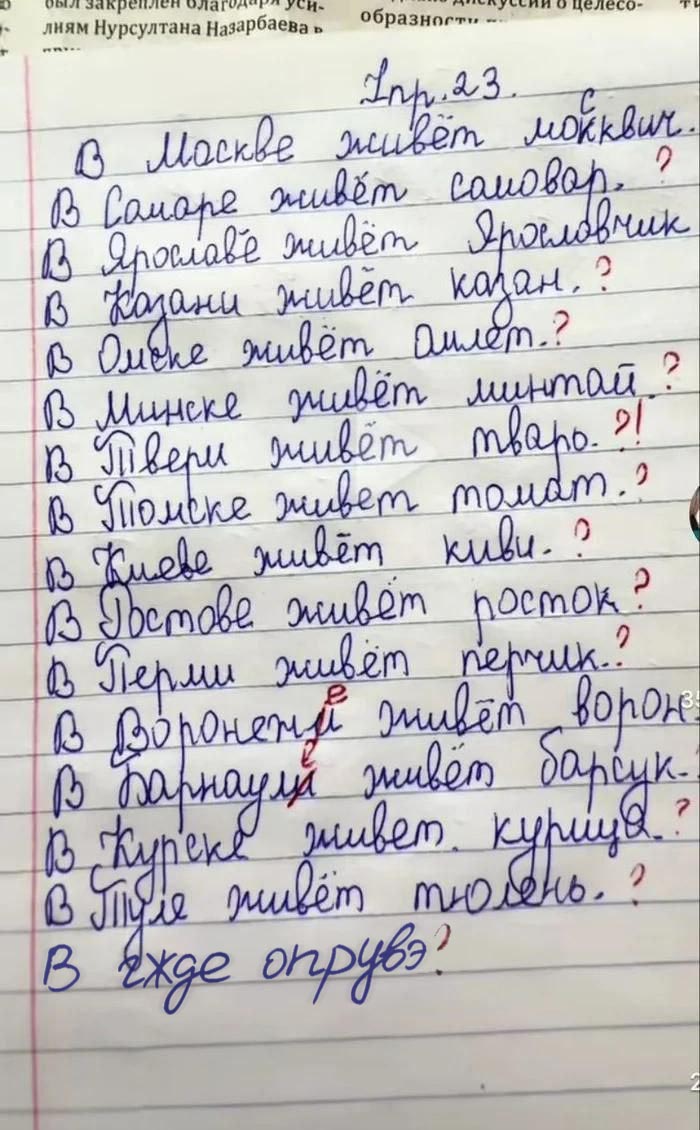 был закреплен благодаря уси-
лиям Нурсултана Назарбаева в
дискуссии о целесо-
образности
Упр. 23.
В Москве живёт москвич.
В Самаре живёт самовар. ?
В Ярославе живёт Ярославчик
В Казани живёт казан. ?
В Омске живёт омлет. ?
В Минске живёт минтай. ?
В Твери живёт тварь. ?!
В Томске живет томат. ?
В Киеве живёт киви. ?
В Ростове живёт росток ?
В Перми живёт перчик. ?
В Воронежи е живёт ворон
В Барнаули е живёт барсук.
В Курске живет курица. ?
В Туле живёт тюлень. ?
В гжде опрувэ ?